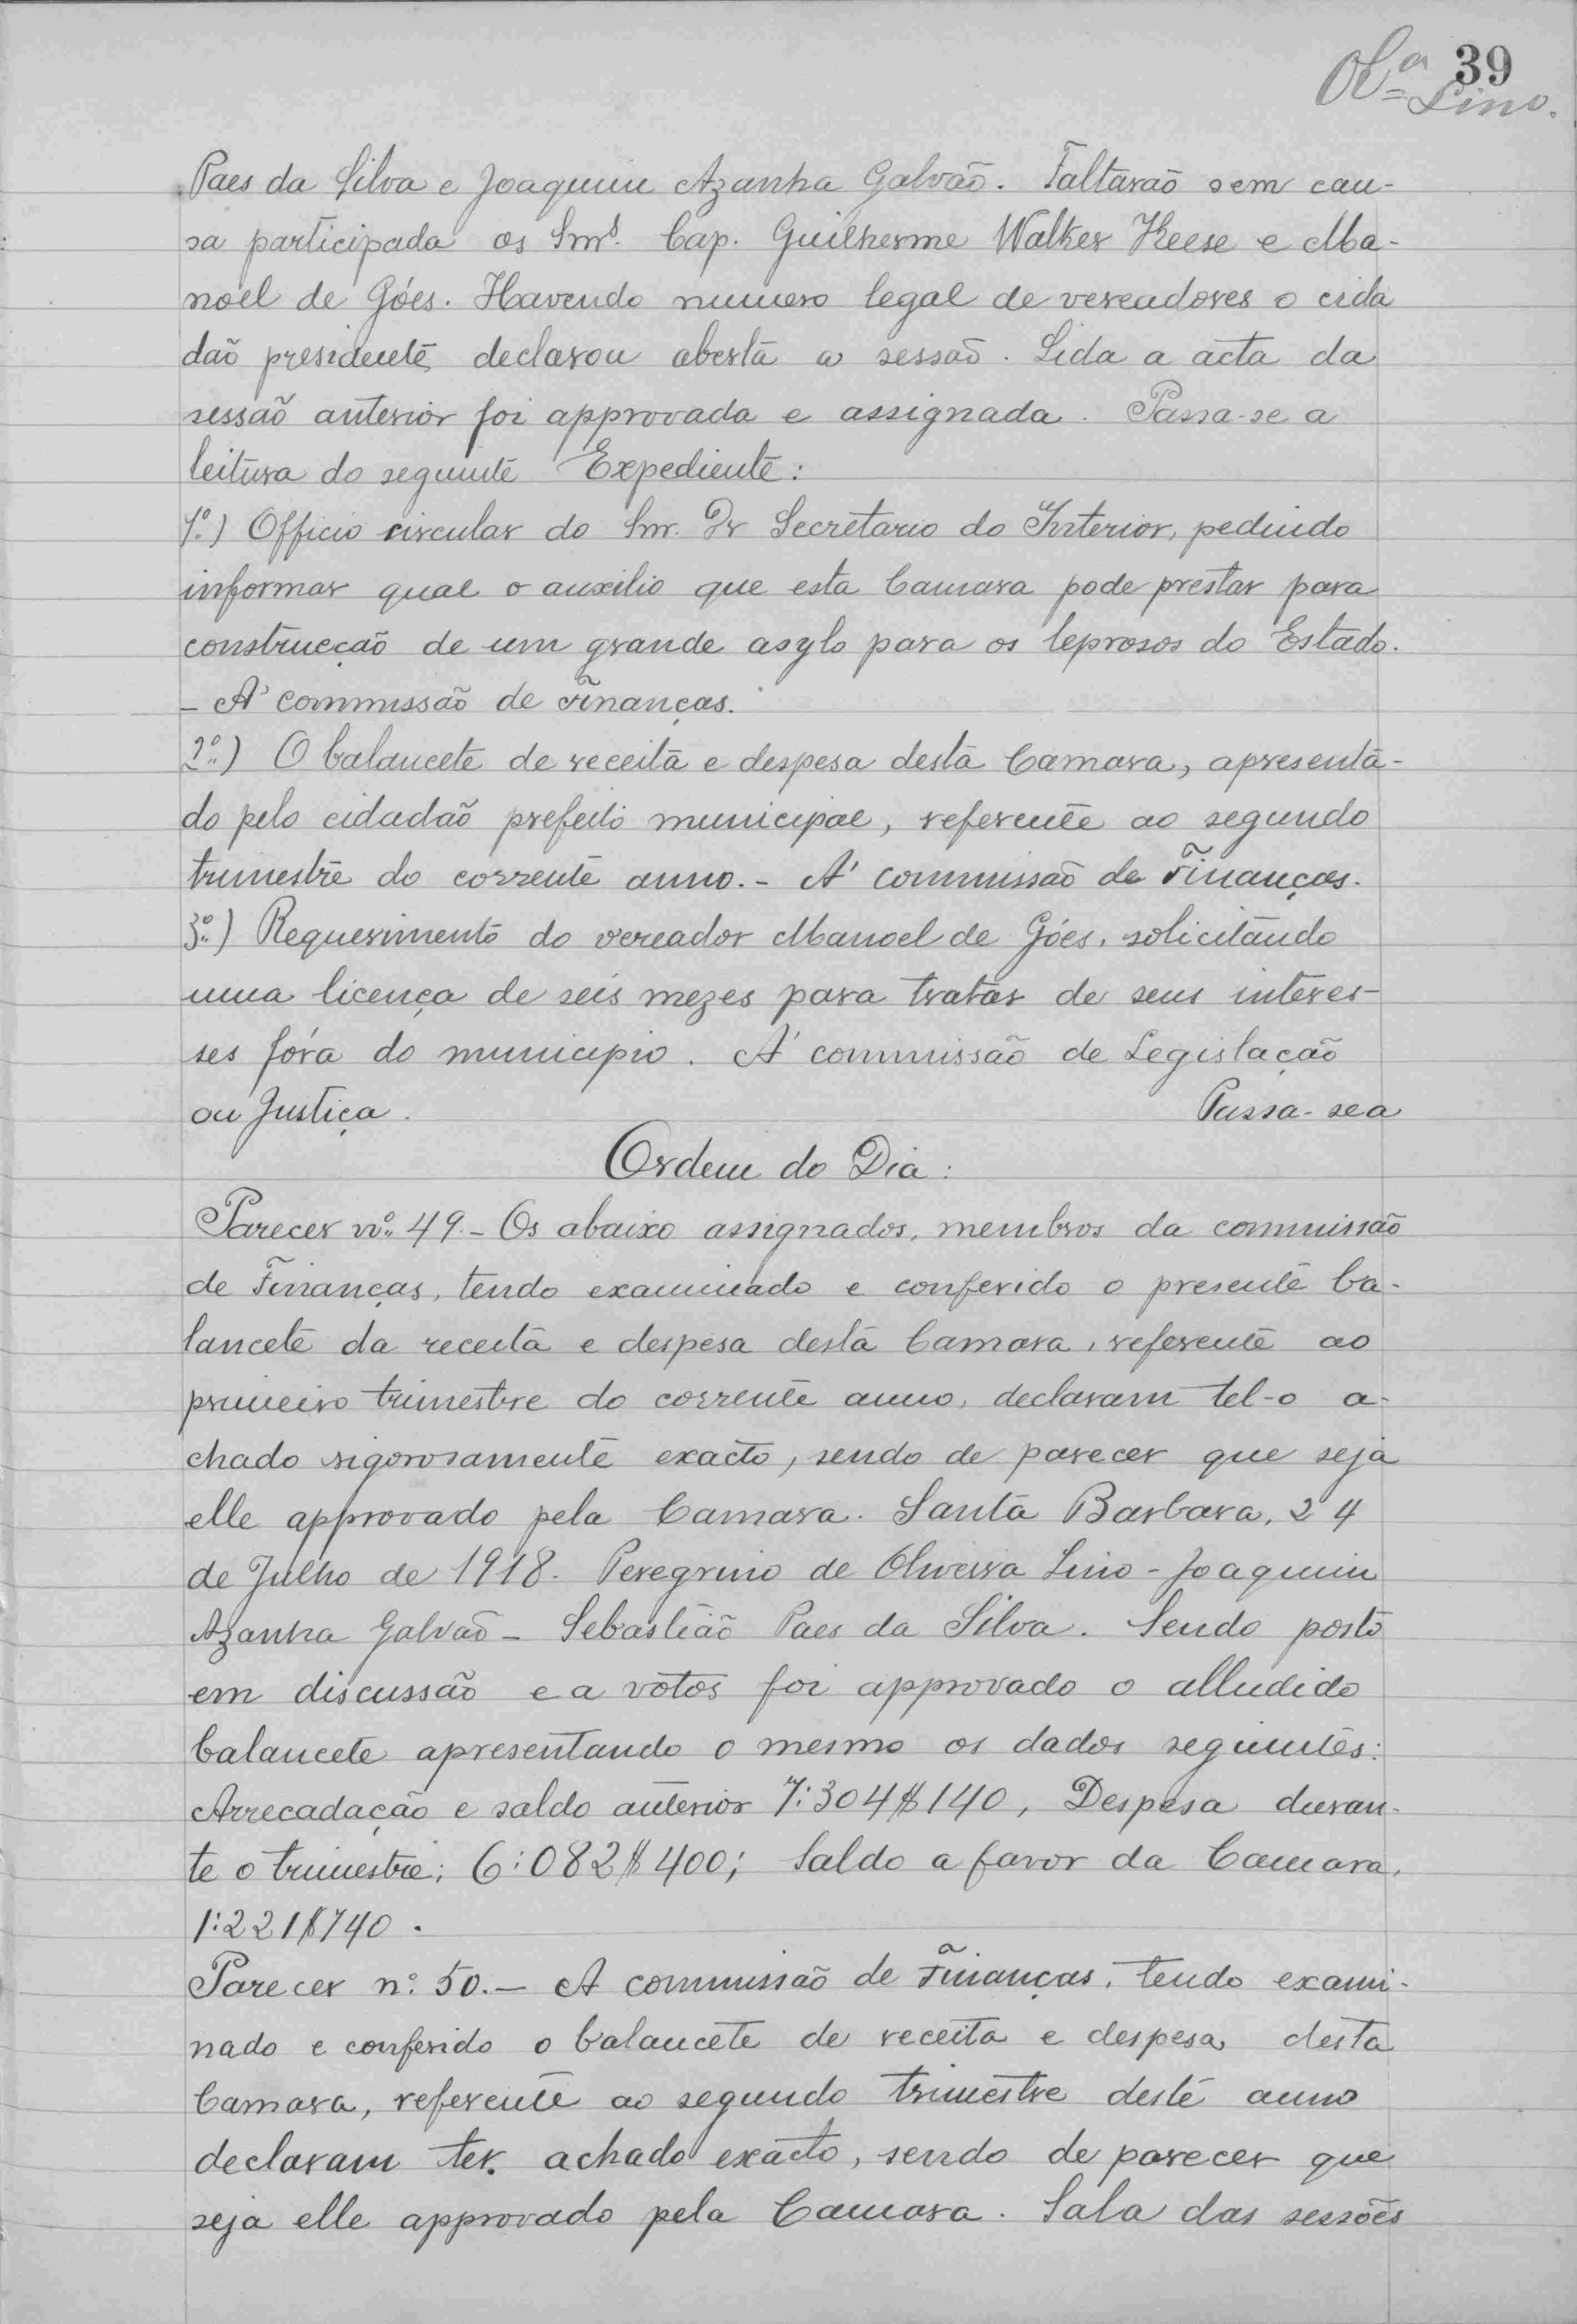 39
Olª Lino.
Paes da Silva e Joaquim Azanha Galvão. Faltarão sem cau-
sa participada os Smrs. Cap. Guilherme Walker Keese e Ma-
noel de Góes. Havendo numero legal de vereadores o cida
dão presidente declarou aberta a sessão. Lida a acta da
sessão anterior foi approvada e assignada. Passa-se a
leitura do seguinte Expediente:
1º.) Officio circular do Snr. Dr Secretario do Interior, pedindo
informar qual o auxilio que esta Camara pode prestar para
construcção de um grande asylo para os leprosos do Estado.
- A' commissão de Finanças.
2º.) O balancete de receita e despesa desta Camara, apresenta-
do pelo cidadão prefeito municipal, referente ao segundo
trimestre do corrente anno. - A' commissão de Finanças.
3º.) Requerimento do vereador Manoel de Góes, solicitando
uma licença de seis mezes para tratar de seus interes-
ses fóra do municipio. A' commissão de Legislação
ou Justiça. Passa-se a
Ordem do Dia:
Parecer nº. 49. - Os abaixo assignados, membros da commissão
de Finanças, tendo examinado e conferido o presente ba-
lancete da receita e despesa desta Camara, referente ao
primeiro trimestre do corrente anno, declaram tel-o a-
chado rigorosamente exacto, sendo de parecer que seja
elle approvado pela Camara. Santa Barbara, 24
de Julho de 1918. Peregrino de Oliveira Lino - Joaquim
Azanha Galvão - Sebastião Paes da Silva. Sendo posto
em discussão e a votos foi approvado o alludido
balancete apresentando o mesmo os dados seguintes:
Arrecadação e saldo anterior 7:304$140, Despesa duran-
te o trimestre; 6:082$400; Saldo a favor da Camara,
1:221$740.
Parecer nº. 50. - A commissão de Finanças, tendo exami-
nado e conferido o balancete de receita e despesa desta
Camara, referente ao segundo trimestre deste anno
declaram ter. achado exacto, sendo de parecer que
seja elle approvado pela Camara. Sala das sessões